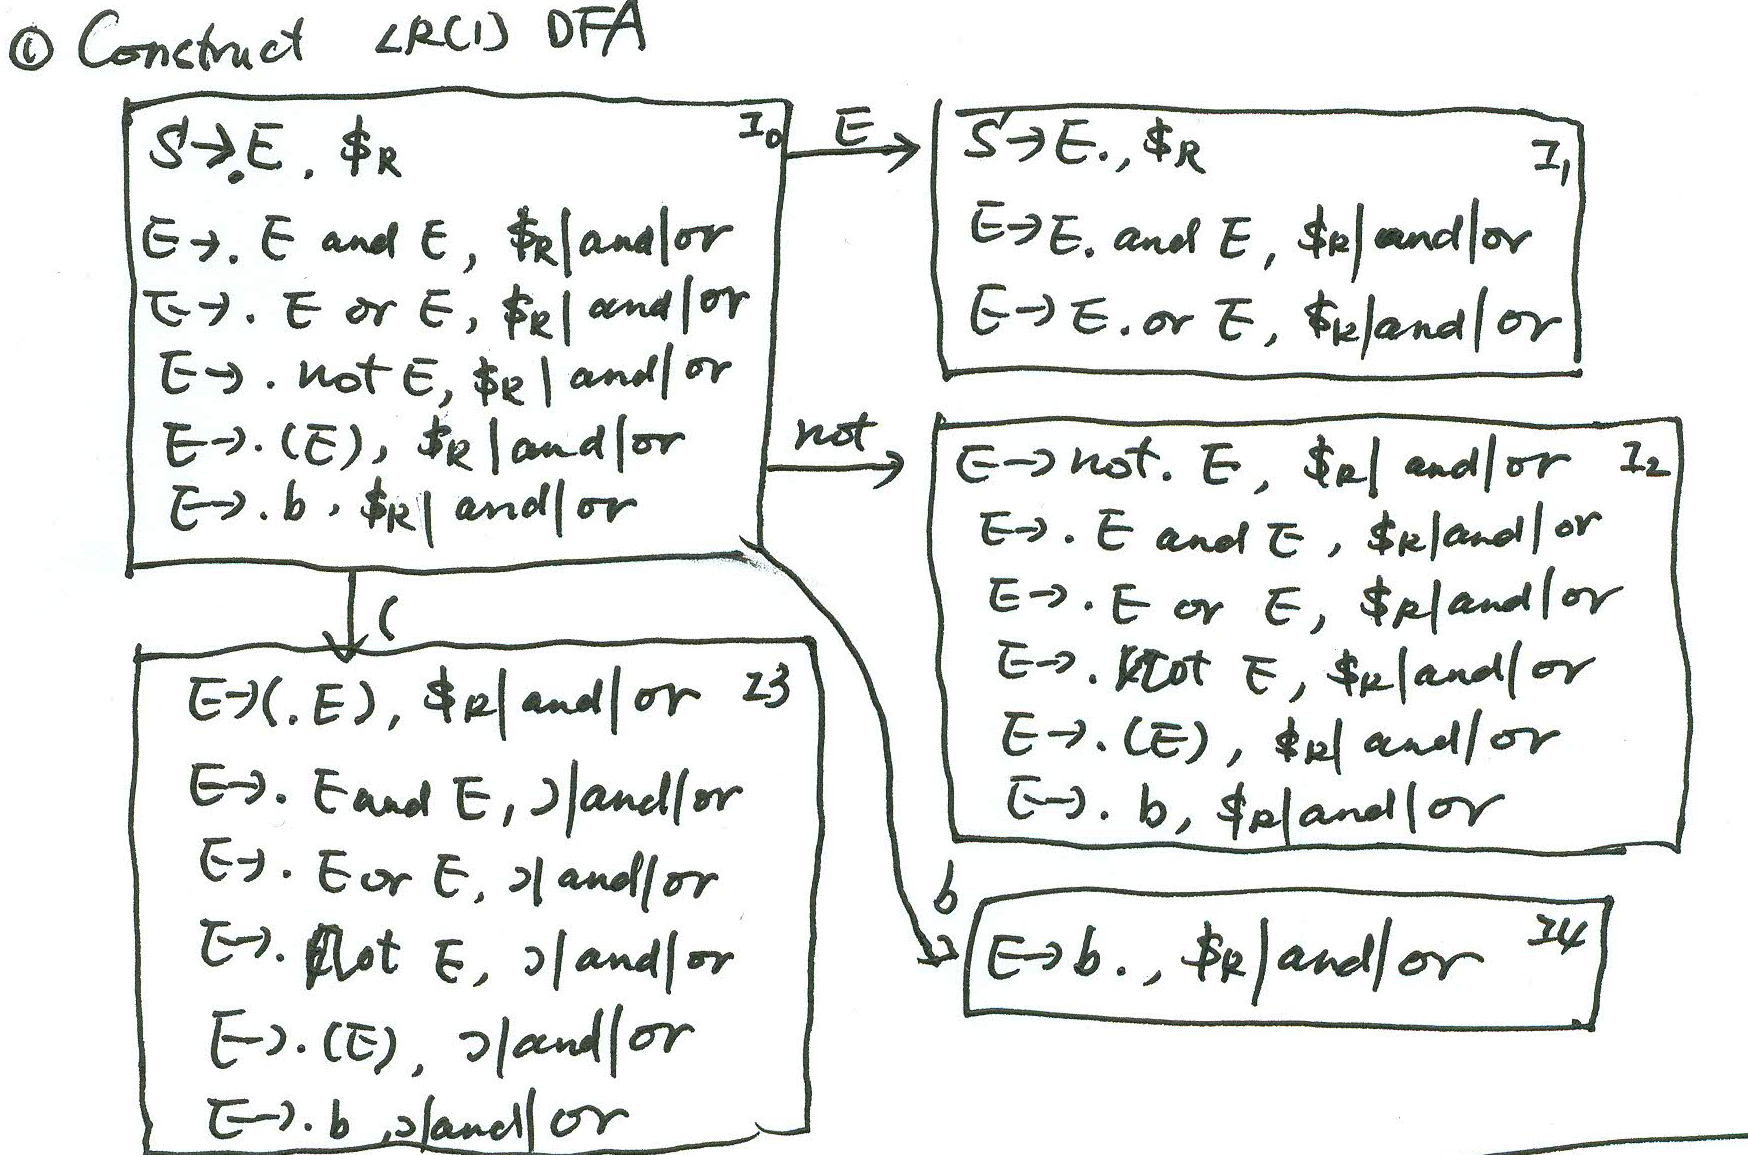 ① Construct LR(1) DFA
I0
S'→.E, $R
E→. E and E, $R|and|or
E→. E or E, $R|and|or
E→. not E, $R|and|or
E→.(E), $R|and|or
E→.b, $R|and|or
E
I1
S'→E., $R
E→E. and E, $R|and|or
E→E. or E, $R|and|or
not
E→not. E, $R|and|or I2
E→. E and E, $R|and|or
E→. E or E, $R|and|or
E→. not E, $R|and|or
E→.(E), $R|and|or
E→. b, $R|and|or
(
E→(.E), $R|and|or I3
E→. E and E, )|and|or
E→. E or E, )|and|or
E→. not E, )|and|or
E→.(E), )|and|or
E→.b, )|and|or
b
E→b., $R|and|or I4